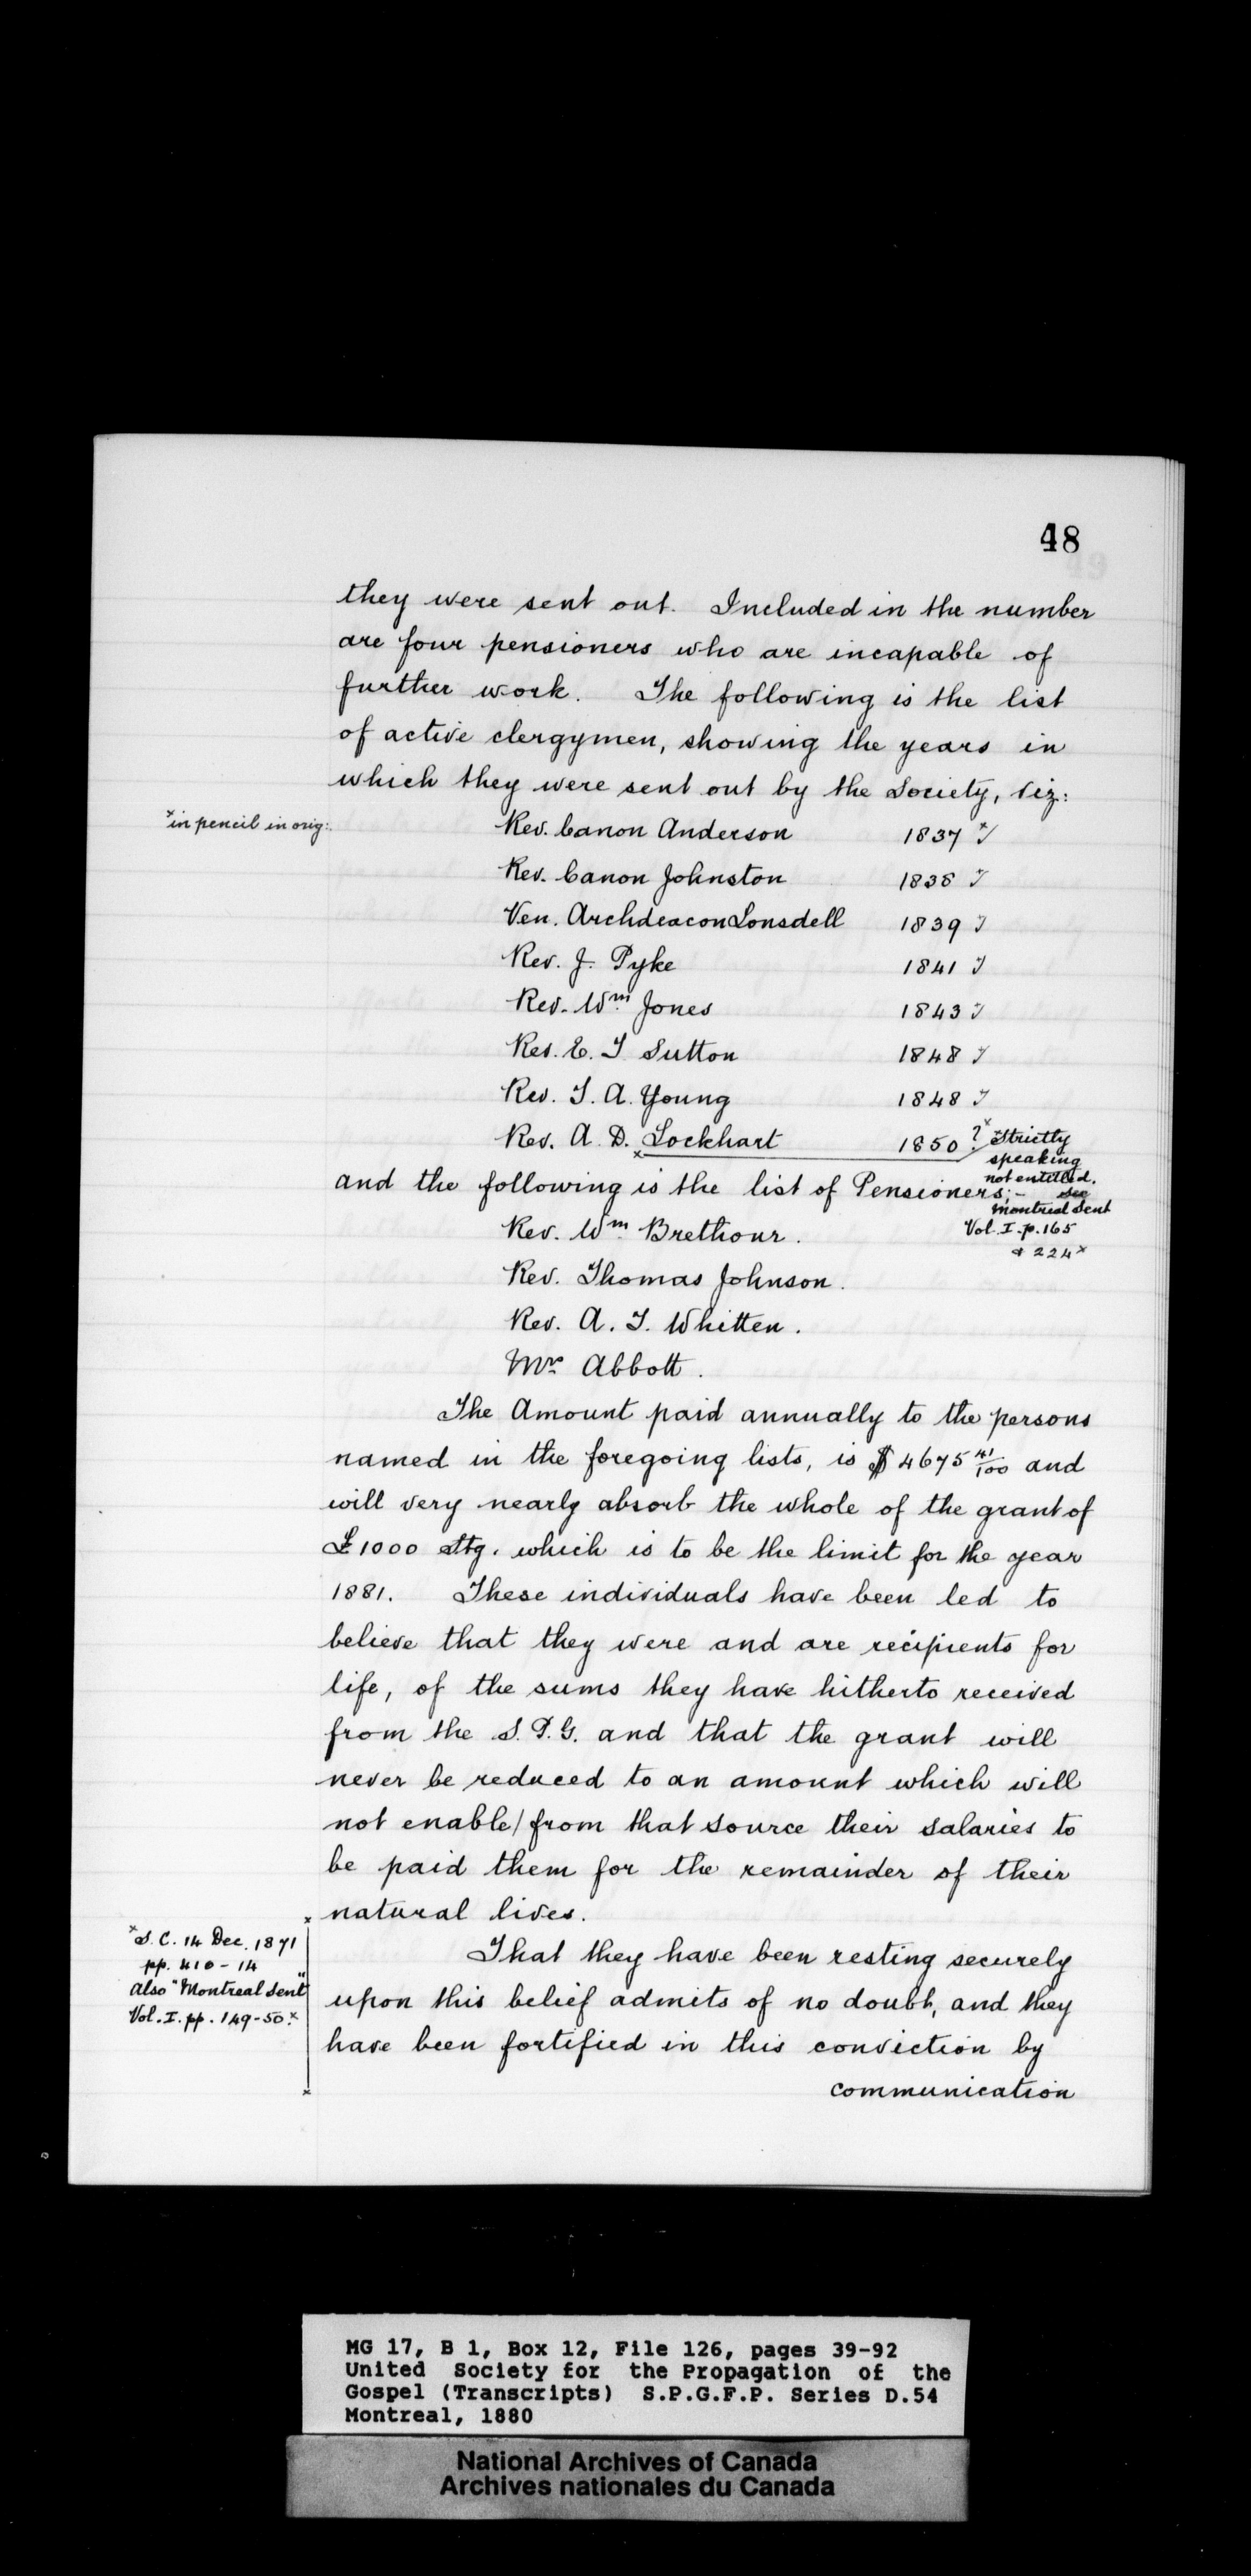 48
they were sent out. Included in the number
are four pensioners who are incapable of
further work. The following is the list
of active clergymen, showing the years in
which they were sent out by the Society, viz:
ˣin pencil in orig:
Rev. Canon Anderson 1837 ˣ√
Rev. Canon Johnston 1838 √
Ven. Archdeacon Lonsdell 1839 √
Rev. J. Pyke 1841 √
Rev. Wm. Jones 1843 √
Rev. E. T Sutton 1848 √
Rev. T. A. Young 1848 √
Rev. A. D. Lockhart 1850 ?ˣ
ˣStrictly
speaking
not entitled.
see
Montreal Sent
Vol. I. p. 165
& 224ˣ
and the following is the list of Pensioners;-
Rev. Wm. Brethour.
Rev. Thomas Johnson.
Rev. A. T. Whitten.
Mrs Abbott.
The Amount paid annually to the persons
named in the foregoing lists, is $4675 41/100 and
will very nearly absorb the whole of the grant of
£1000 Stg. which is to be the limit for the year
1881. These individuals have been led to
believe that they were and are recipients for
life, of the sums they have hitherto received
from the S.P.G. and that the grant will
never be reduced to an amount which will
not enable/from that source their salaries to
be paid them for the remainder of their
natural lives.
ˣS.C. 14 Dec. 1871
pp. 410-14
Also "Montreal Sent"
Vol. I. pp. 149-50.ˣ
That they have been resting securely
upon this belief admits of no doubt, and they
have been fortified in this conviction by
communication
MG 17, B 1, Box 12, File 126, pages 39-92
United Society for the Propagation of the
Gospel (Transcripts) S.P.G.F.P. Series D.54
Montreal, 1880
National Archives of Canada
Archives nationales du Canada